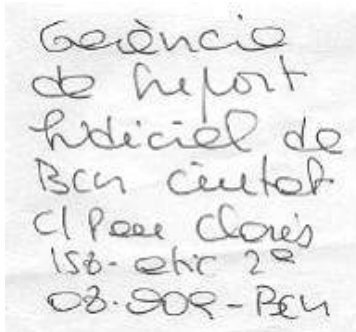 Gerència
de Suport
Judicial de
BCN Ciutat
C/ Pau Clarís
158- àtic 2ª
08.009-BCN